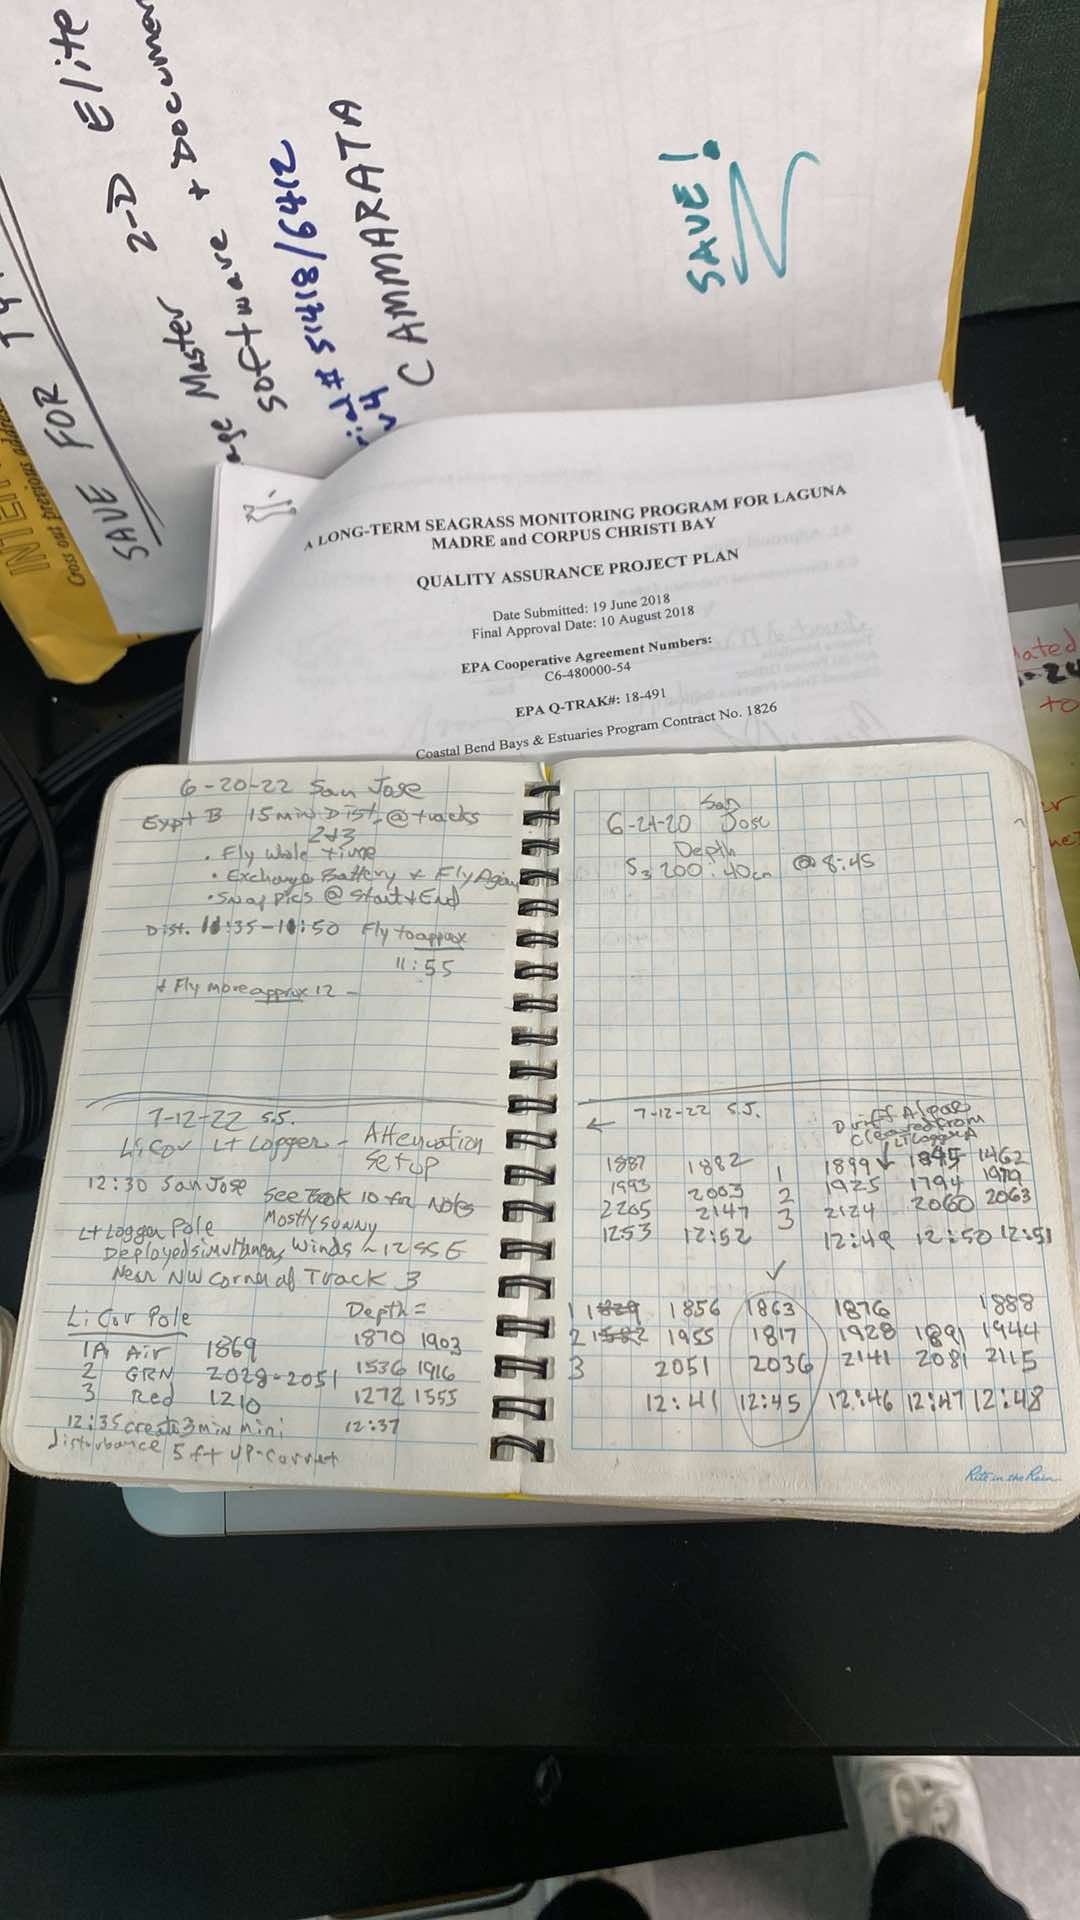 INTER
Cross out previous address
SAVE FOR
2-D Elite
Master + Documen
software
# 51418/6412
v4
CAMMARATA
SAVE!
A LONG-TERM SEAGRASS MONITORING PROGRAM FOR LAGUNA
MADRE and CORPUS CHRISTI BAY
QUALITY ASSURANCE PROJECT PLAN
Date Submitted: 19 June 2018
Final Approval Date: 10 August 2018
EPA Cooperative Agreement Numbers:
C6-480000-54
EPA Q-TRAK#: 18-491
Coastal Bend Bays & Estuaries Program Contract No. 1826
ated
-24
to
6-20-22 San Jose
Expt B 15 min Dist. @ tracks
2+3
• Fly whole time
• Exchange Battery + Fly Again
• Snap pics @ Start + End
Dist. 11:35-11:50 Fly to approx
11:55
+ Fly more approx 12 -
7-12-22 S.J.
LiCor Lt Logger - Attenuation
Setup
12:30 San Jose See Book 10 for Notes
Mostly sunny
Lt Logger Pole
Deployed simultaneous, Winds ~ 12 SSE
Near NW corner of Track 3
LiCor Pole Depth =
1A Air 1869 1870 1903
2 GRN 2029-2051 1536 1916
3 Red 1210 1272 1555
12:35 create 3 min mini 12:37
disturbance 5 ft UP-current
San
6-24-20 Jose
Depth
S3 200: 40cm @ 8:45
← 7-12-22 S.J. Drift Algae
Cleared from
Lt Logger
1887 1882 1 1899 1845 1462
1993 2003 2 1925 1794 1979
2205 2147 3 2124 2060 2063
1253 12:52 12:49 12:50 12:51
✓
1 1829 1856 1863 1876 1888
2 1582 1955 1817 1928 1891 1944
3 2051 2036 2141 2081 2115
12:41 12:45 12:46 12:47 12:48
Rite in the Rain